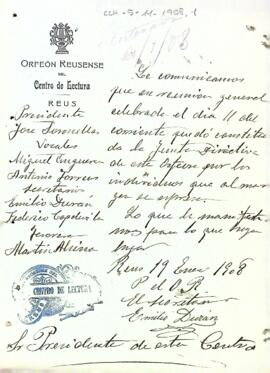 CCR-5-11-1908,1
ORFEÓN REUSENSE
DEL
Centro de Lectura
REUS
Presidente
Jose
Vocales
Miguel
Antonio Torrens
Secretario
Emilio Durán
Federico Capdevila
Tesorero
Martin
CENTRO DE LECTURA
Le comunicamos
que en reunion general
celebrada el dia 11 del
corriente quedó constitui
da la Junta Directiva
de este Orfeon por los
individuos que al mar
gen se expresan.
Lo que le manifesta
mos para lo que haya
lugar
Reus 19 Enero 1908
P. A. D. L. J.
El Secretario
Emilio Durán
Sr Presidente de este Centro